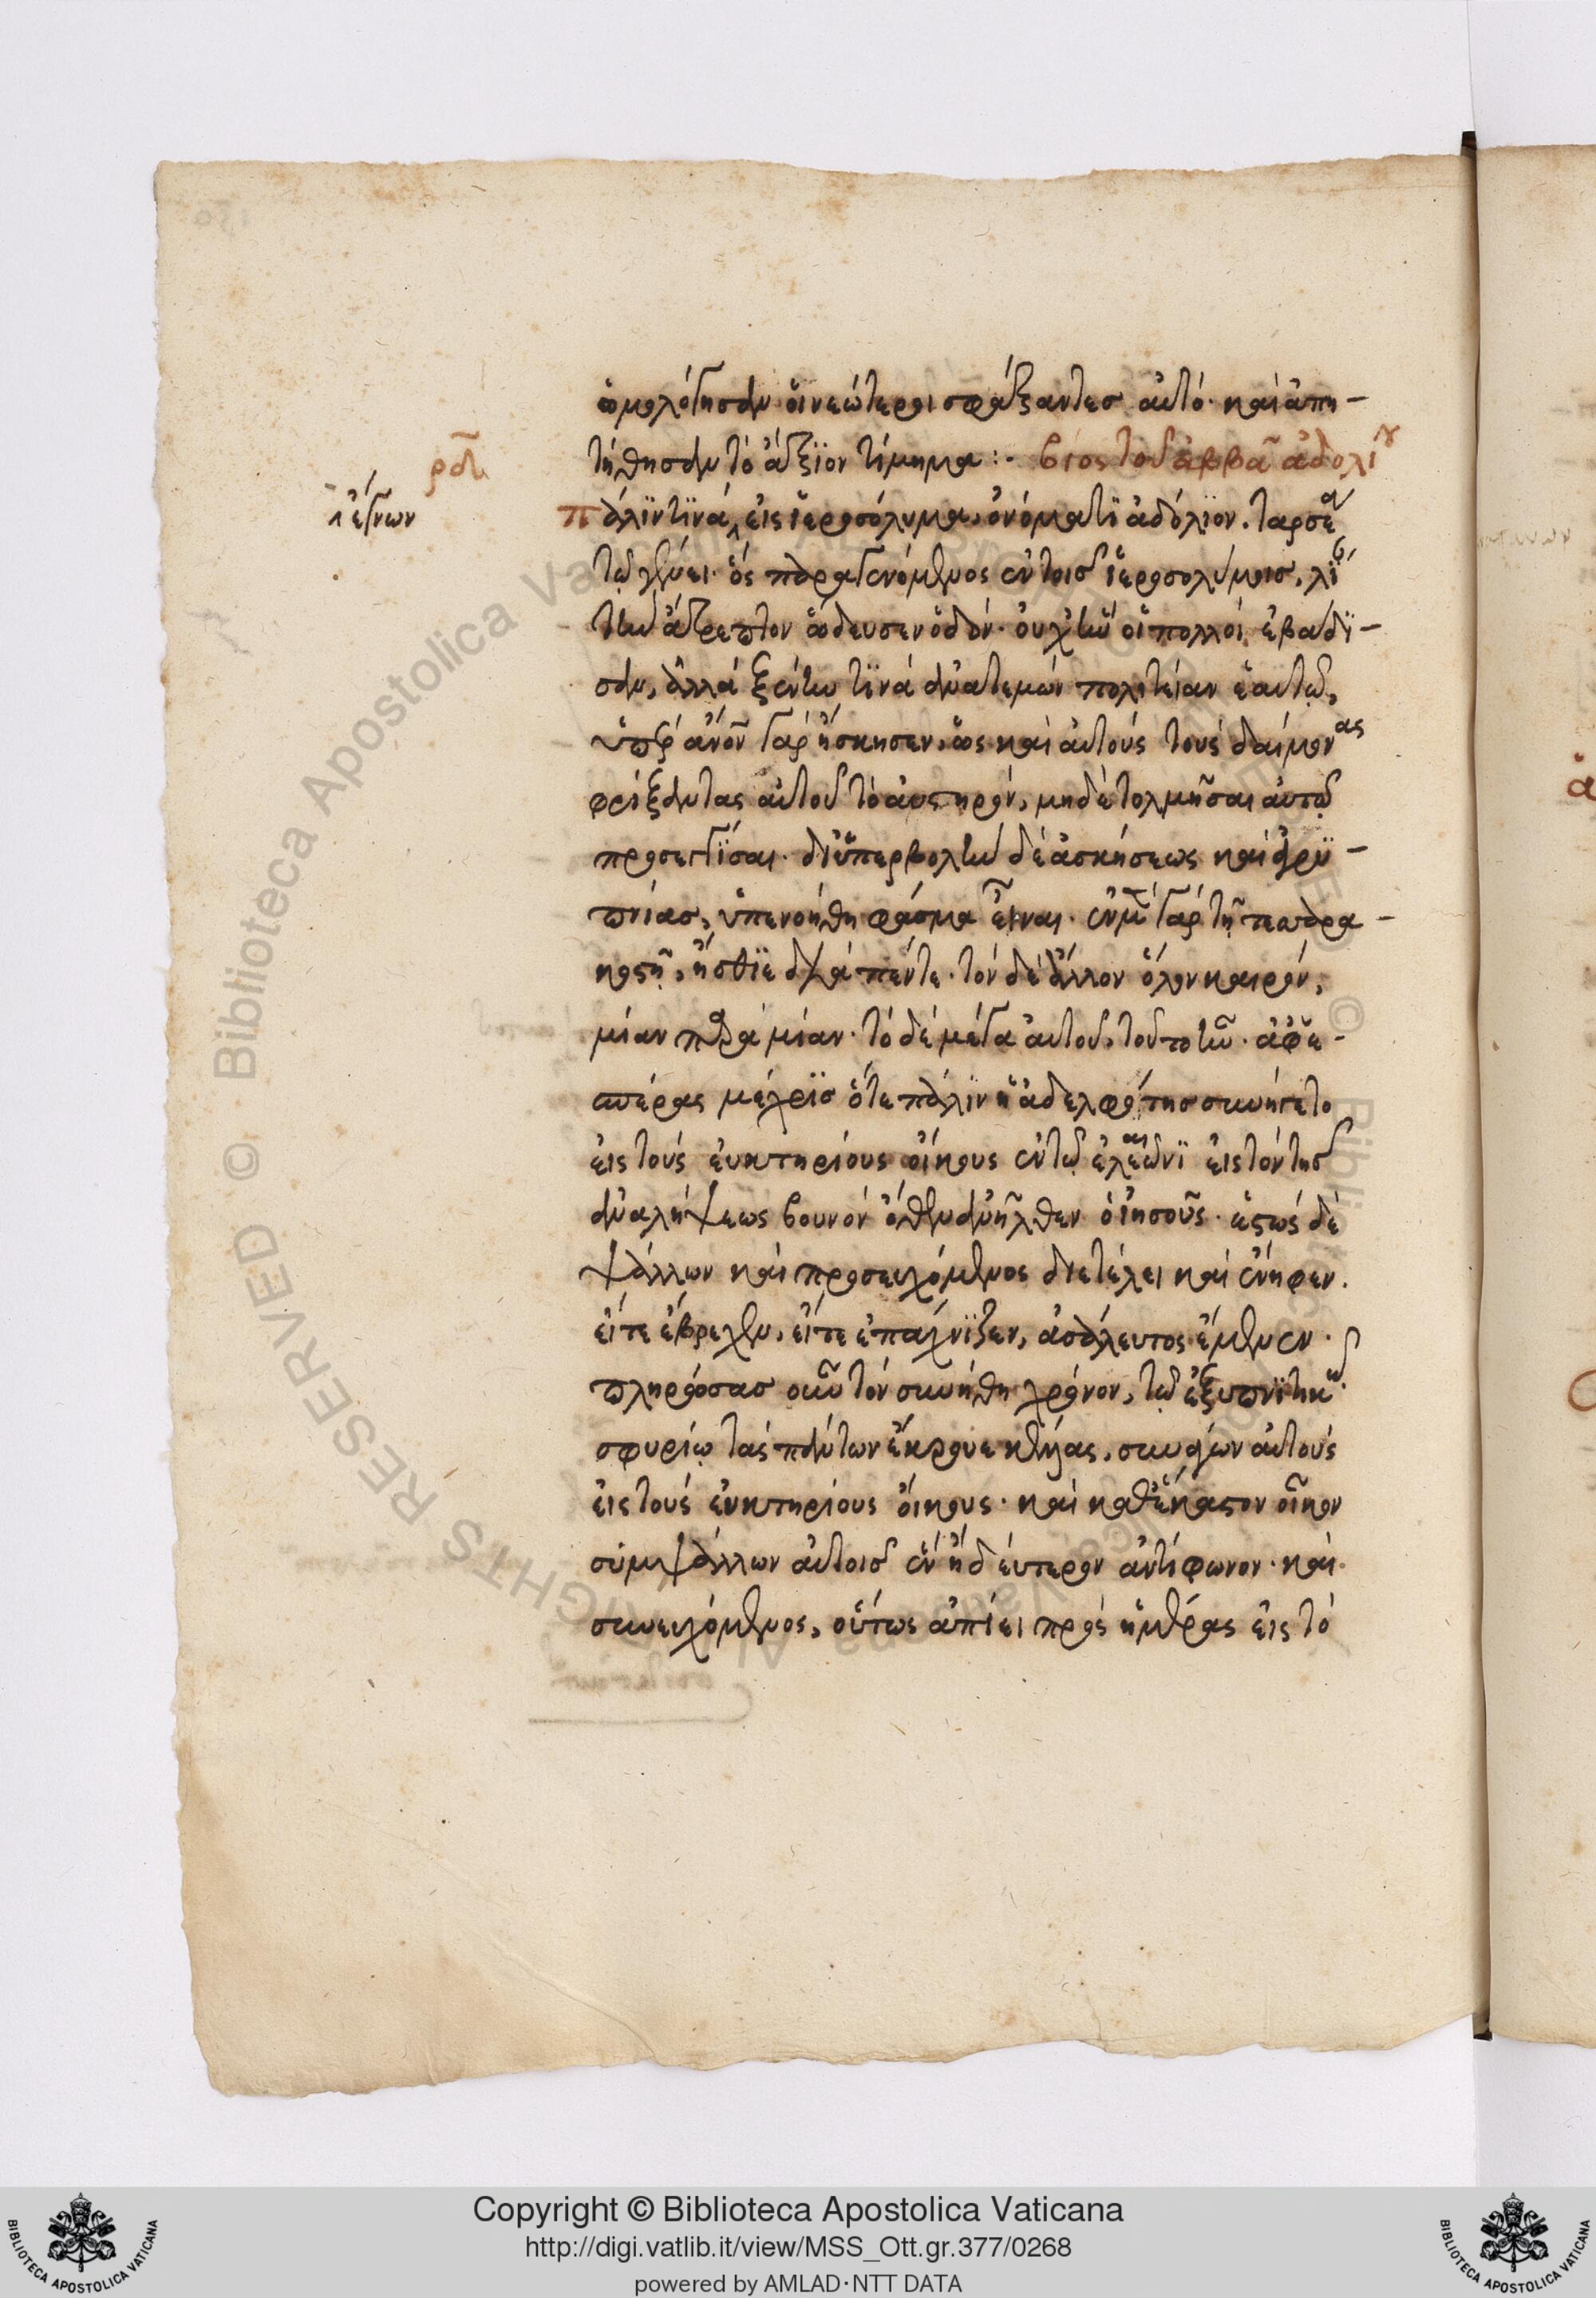 ὡμολόγησαν οἱ νεώτεροι σφάξαντες αὐτό· καὶ ἀπη-
τήθησαν τὸ ἄξϊον τίμημα :· βίος τοῦ ἀββᾶ ἀδολίου
ρδ
ἔγνων
πάλϊν τϊνά, εἰς ἱεροσόλυμα, ὀνόματϊ ἀδόλϊον. ταρσέα
τῷ γένει· ὃς παραγενόμενος ἐν τοῖς ἱεροσολύμοις, λί
τὴν ἄτρεπτον ὥδευσεν ὁδόν· οὐχ ἣν οἱ πολλοὶ ἐβαδϊ-
σαν, ἀλλὰ ξένην τϊνὰ ἀνατεμὼν πολιτείαν ἑαυτῷ,
ὑπὲρ ἄνον γὰρ ἤσκησεν, ὡς καὶ αὐτοὺς τοὺς δαίμονας
φρίξαντας αὐτοῦ τὸ αὐστηρόν, μηδὲ τολμῆσαι αὐτῷ
προσεγγΐσαι. δι ὑπερβολὴν δὲ ἀσκήσεως καὶ ἀγρϋ-
πνίας, ὑπενοήθη φάσμα εἶναι. ἐν μὲν γὰρ τῇ τεσσαρα-
κοστῇ, ἤσθϊε διὰ πέντε. τὸν δὲ ἄλλον ὅλον καιρόν,
μίαν παρὰ μίαν. τὸ δὲ μέγα αὐτοῦ, τοῦτο ἦν. ἀφ ἑ-
σπέρας μέχρϊς ὅτε πάλϊν ἡ ἀδελφότης συνήγετο
εἰς τοὺς εὐκτηρίους οἴκους ἐν τῷ ἐλαιῶνϊ εἰς τὸν τῆς
ἀναλήψεως βουνὸν ὅθεν ἀνῆλθεν ὁ ἰησοῦς. ἑστὼς δὲ
ψάλλων καὶ προσευχόμενος διετέλει καὶ ἔνηφεν.
εἴτε ἔβρεχεν, εἴτε ἐπάχνϊζεν, ἀσάλευτος ἔμενεν.
πληρώσας οὖν τὸν συνήθη χρόνον, τῷ ἐξυπνϊτικῷ
σφυρίῳ τὰς πάντων ἔκρουε κέλλας, συνάγων αὐτοὺς
εἰς τοὺς εὐκτηρίους οἴκους. καὶ καθ ἕκαστον οἶκον
συμψάλλων αὐτοῖς ἓν ἢ δεύτερον ἀντίφωνον. καὶ
συνευχόμενος, οὕτως ἀπίει πρὸς ἡμέρας εἰς τὸ
Copyright © Biblioteca Apostolica Vaticana
http://digi.vatlib.it/view/MSS_Ott.gr.377/0268
powered by AMLAD·NTT DATA